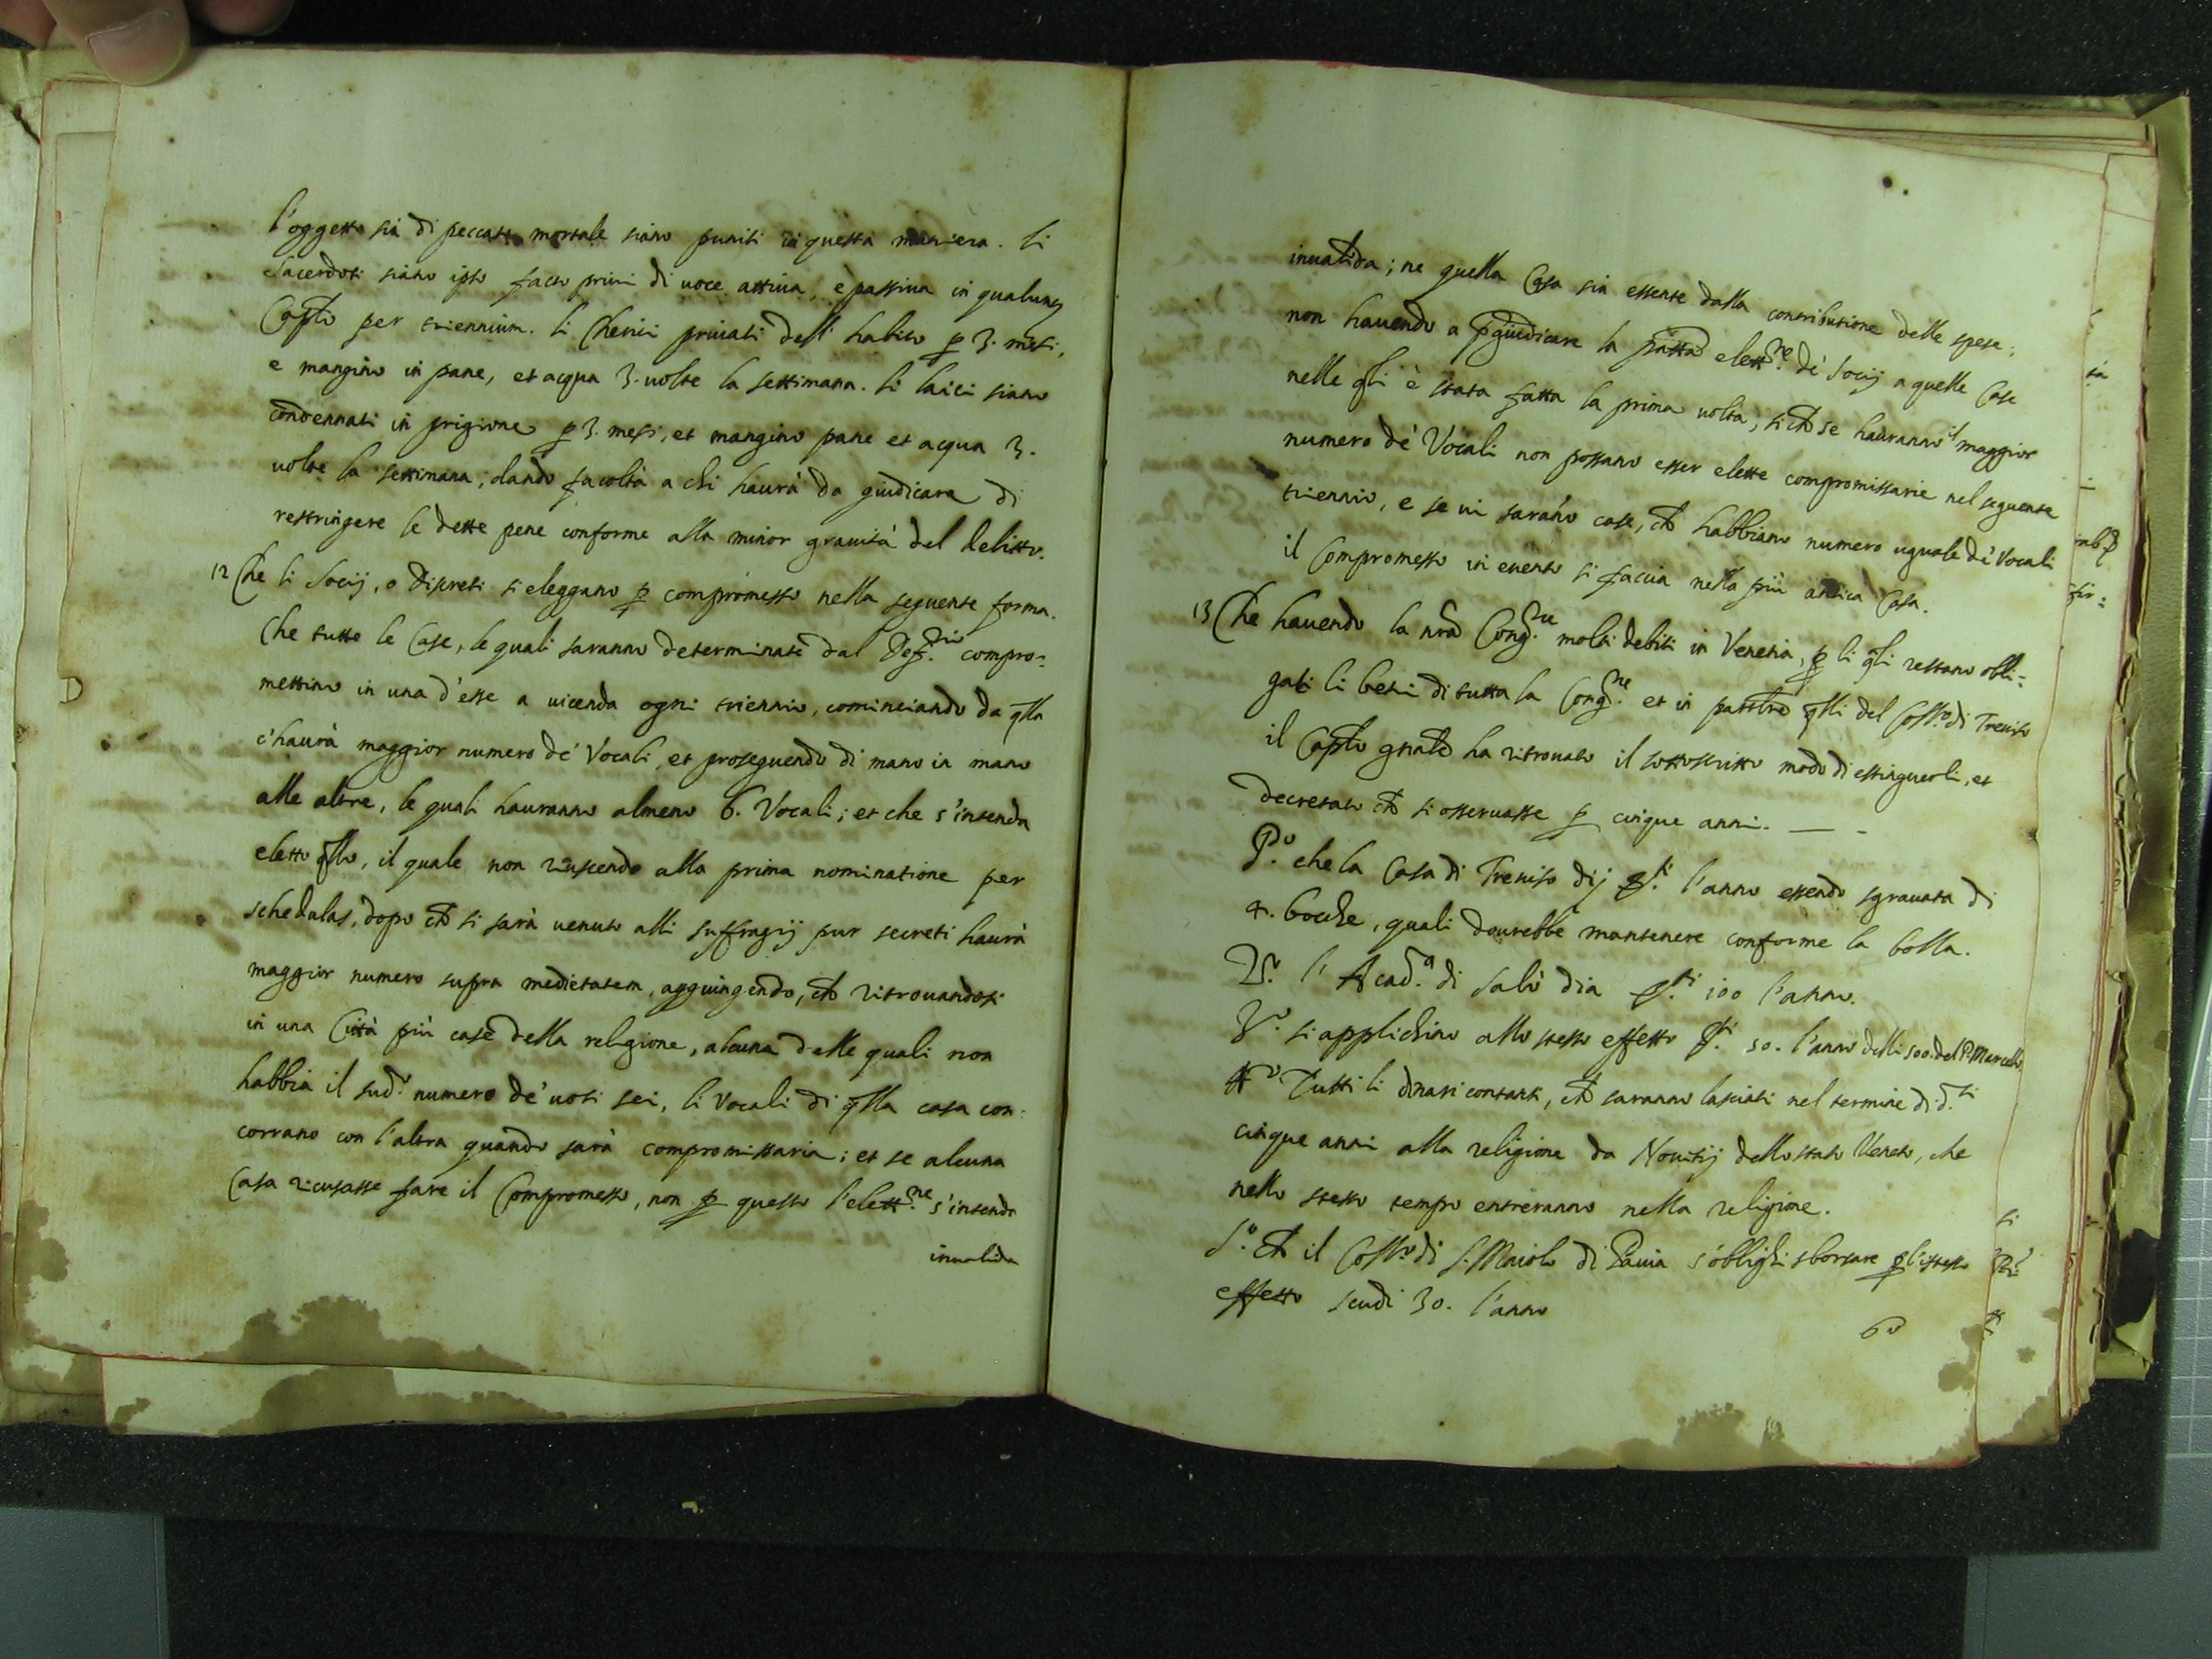 l'oggetto sia di peccato mortale siano puniti in questa maniera. Li
Sacerdoti siano ipso facto privi di uoce attiua, e passiua in qualunq
Caplo per triennium. Li Cherici priuati dell' habito p 3. mesi,
e mangino in pane, et acqua 3. uolte la settimana. Li laici siano
condennati in prigione p 3. mesi, et mangino pane et acqua 3.
uolte la settimana; dando facoltà a chi haurà da giudicare di
restringere le dette pene conforme alla minor grauità del delitto.
12 Che li Socij, o Discreti si eleggano p compromesso nella seguente forma.
Che tutte le Case, le quali saranno determinate dal Def.rio compro=
mettino in una d'esse a uicenda ogni triennio, cominciando da qlla
c'haurà maggior numero de' Vocali, et proseguendo di mano in mano
alle altre, le quali hauranno almeno 6. Vocali; et che s'intenda
eletto qllo, il quale non riuscendo alla prima nominatione per
schedulas, dopo che si sarà uenuto alli suffragij pur secreti haurà
maggior numero supra medietatem, aggiungendo, che ritrouandosi
in una Città più case della religione, alcuna delle quali non
habbia il sud.o numero de' uoti sei, li Vocali di qlla casa con=
corrano con l'altra quando sarà compromissaria; et se alcuna
Casa ricusasse fare il Compromesso, non p questo l'elett.ne s'intenda
inualida
inualida; ne quella Casa sia essente dalla contributione delle spese;
non hauendo a pgiudicare la passata elett.ne de' Socij a quelle Case
nelle qli è stata fatta la prima uolta, si che se hauranno il maggior
numero de' Vocali non possano esser elette compromissarie nel seguente
triennio, e se ui sarano case, che habbiano numero uguale de' Vocali
il Compromesso in euento si faccia nella più antica Casa.
13 Che hauendo la nra Cong.ne molti debiti in Venetia, p li qli restano obli=
gati li beni di tutta la Cong.ne et in parlre qlli del Coll.o di Treuiso
il Caplo gnale ha ritrouato il sottoscritto modo di estinguerli, et
decretato che si osseruasse p cinque anni. — -
P.o che la Casa di Treuiso dij l'anno essendo sgrauata di
4. bocche, quali dourebbe mantenere conforme la bolla.
2.o l'Acad.a di Salò dia 100 l'anno.
3.o si applichino allo stesso effetto 50. l'anno delli 500. del P. Marcello
4.o Tutti li dnari contanti, che saranno lasciati nel termine di d.ti
cinque anni alla religione da Nouitij dello stato Veneto, che
nello stesso tempo entreranno nella religione.
5.o che il Coll.o di S. Maiolo di Pauia s'oblighi sborsare p l'istesso
effetto scudi 30. l'anno
6.o